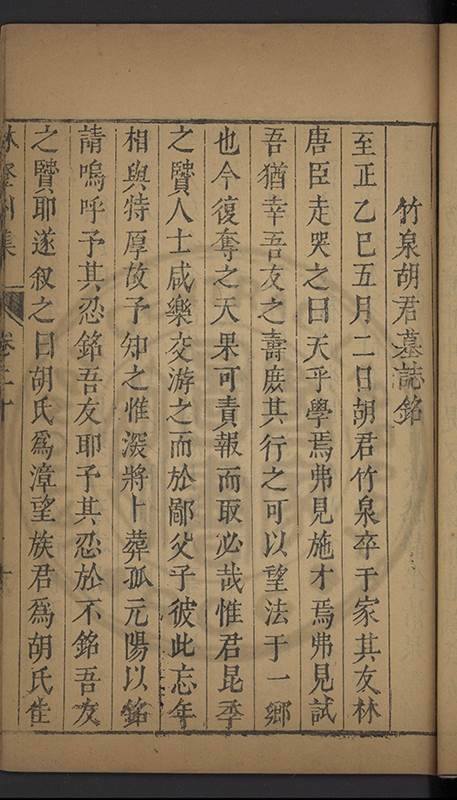 竹泉胡君墓誌銘
至正乙巳五月二日胡君竹泉卒于家其友林
唐臣走哭之曰天乎學焉弗見施才焉弗見試
吾猶幸吾友之壽庶其行之可以望法于一鄉
也今復奪之天果可責報而取必哉惟君昆季
之贒人士咸樂交游之而於鄙父子彼此忘年
相與特厚故予知之惟深將卜葬孤元陽以銘
請嗚呼予其忍銘吾友耶予其忍於不銘吾友
之贒耶遂叙之曰胡氏爲漳望族君爲胡氏隹